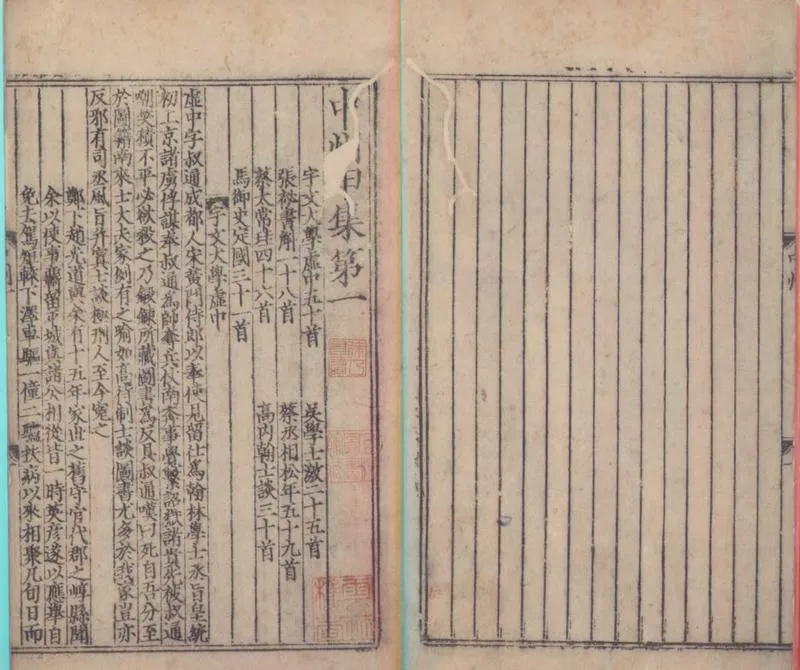 中州甲集第一
宇文大學虛中五十首 吳學士激二十五首
張秘書斛一十八首 蔡丞相松年五十九首
蔡太常珪四十六首 高內翰士談三十首
馬御史定國三十一首
宇文大學虛中
虛中字叔通成都人宋黃門侍郎以奉使見留仕為翰林學士承旨皇統
初上京諸虜俘謀奉叔通為帥奪兵仗南奔事覺繫詔獄諸貴先被叔通
嘲笑積不平必欲殺之乃鍛鍊所藏圖書為反具叔通嘆曰死自吾分至
於圖籍南來士大夫家例有之喻如高待制士談圖書尤多於我家豈亦
反邪有司承風旨并寘士談極刑人至今冤之
鄭下趙光道與余有十五年家世之舊守官代郡之崞縣聞
余以使事羈留平城與諸公相從皆一時英彥遂以應舉自
免去駕短轅下澤車驅一僮二驢扶病以來相聚凡旬日而